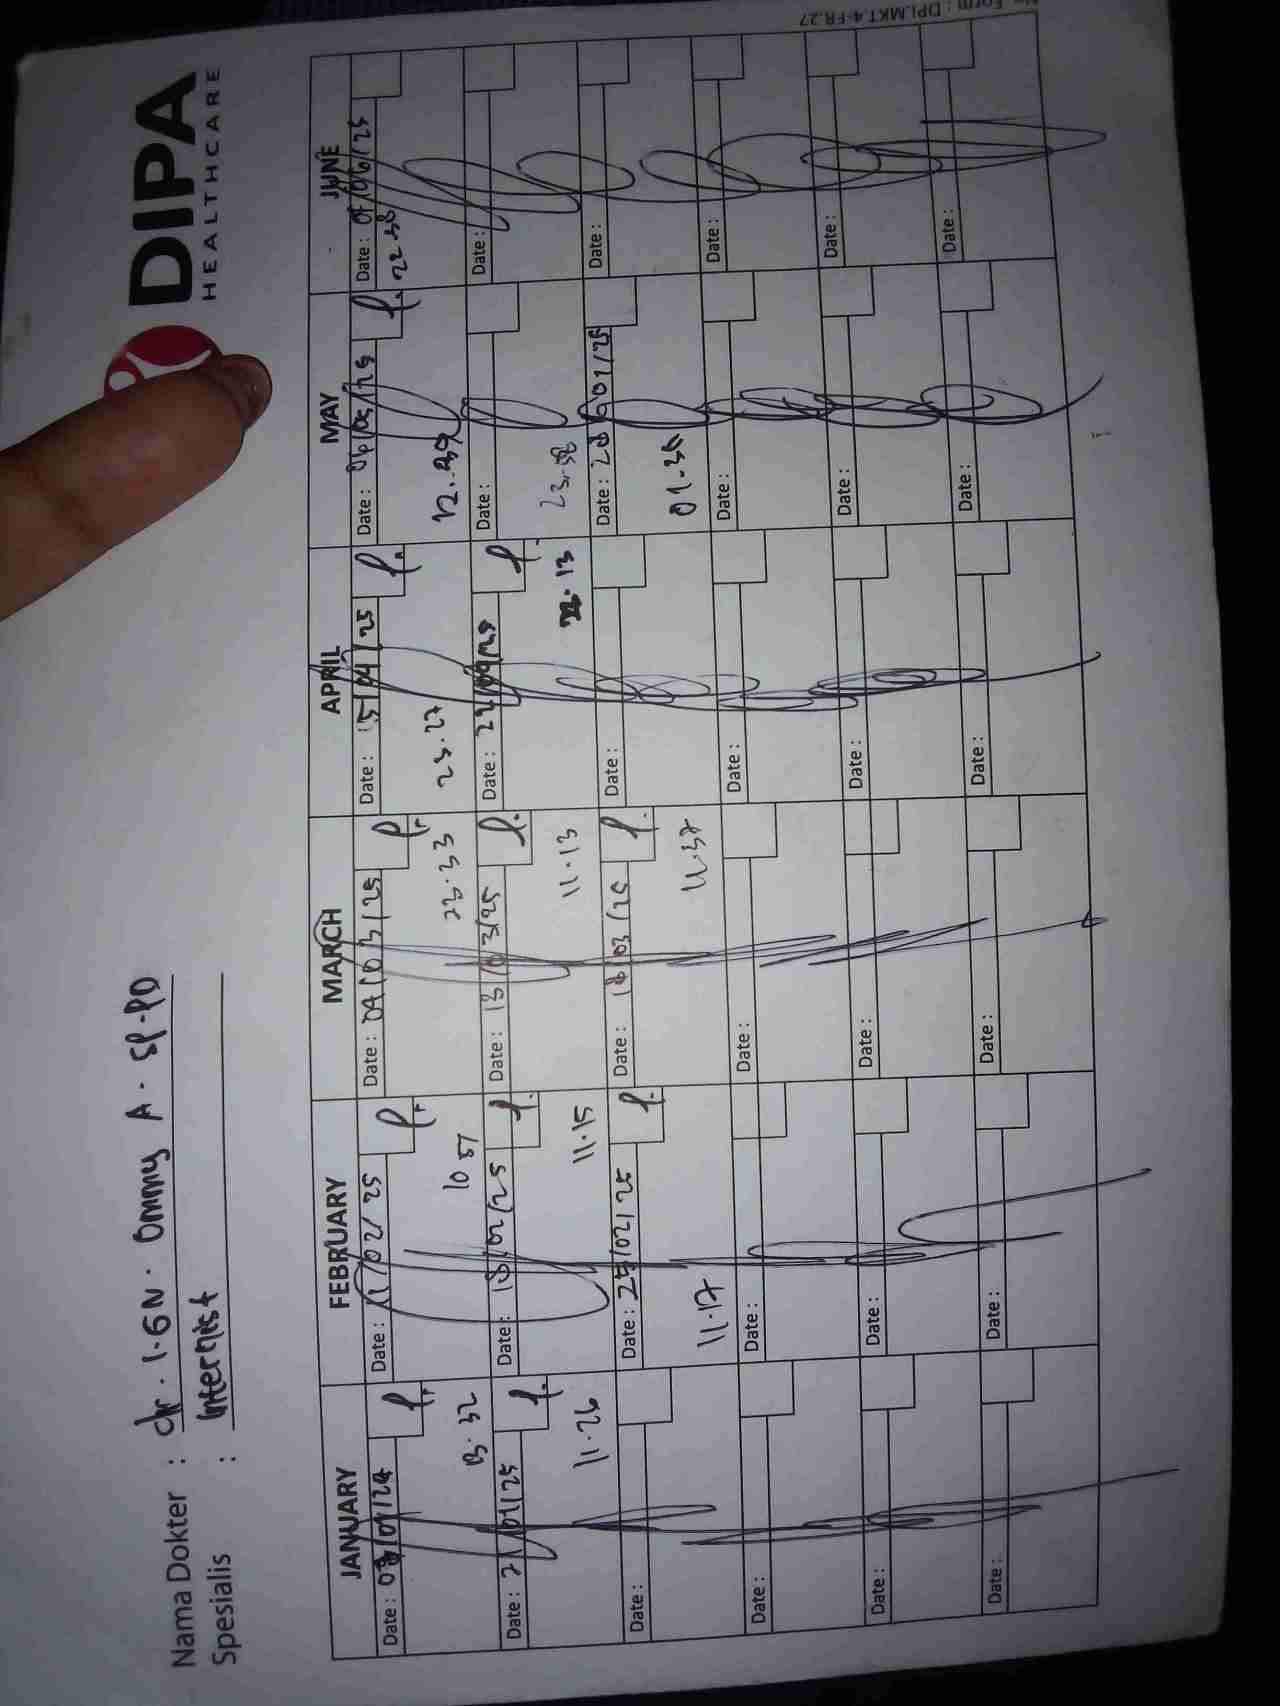 DIPA
HEALTHCARE
Nama Dokter : dr. I.GN. Ommy A. SP.PD
Spesialis : Internist
JANUARY FEBRUARY MARCH APRIL MAY JUNE
Date : 08/01/24 Date : 11/02/25 Date : 04/03/25 Date : 15/04/25 Date : /05/25 Date : /06/25
13.32 10 51 23.33 23.27 12.39 22.58
Date : 21/01/25 Date : 18/02/25 Date : 13/03/25 Date : 22/04/25 Date : Date :
11.26 11.15 11.13 22.13 23.58
Date : Date : 25/02/25 Date : 18/03/25 Date : Date : 20/ /25 Date :
11.17 11.37 01.34
Date : Date : Date : Date : Date : Date :
Date : Date : Date : Date : Date : Date :
Date : Date : Date : Date : Date : Date :
No. Form : DPI.MKT.4-FR.27